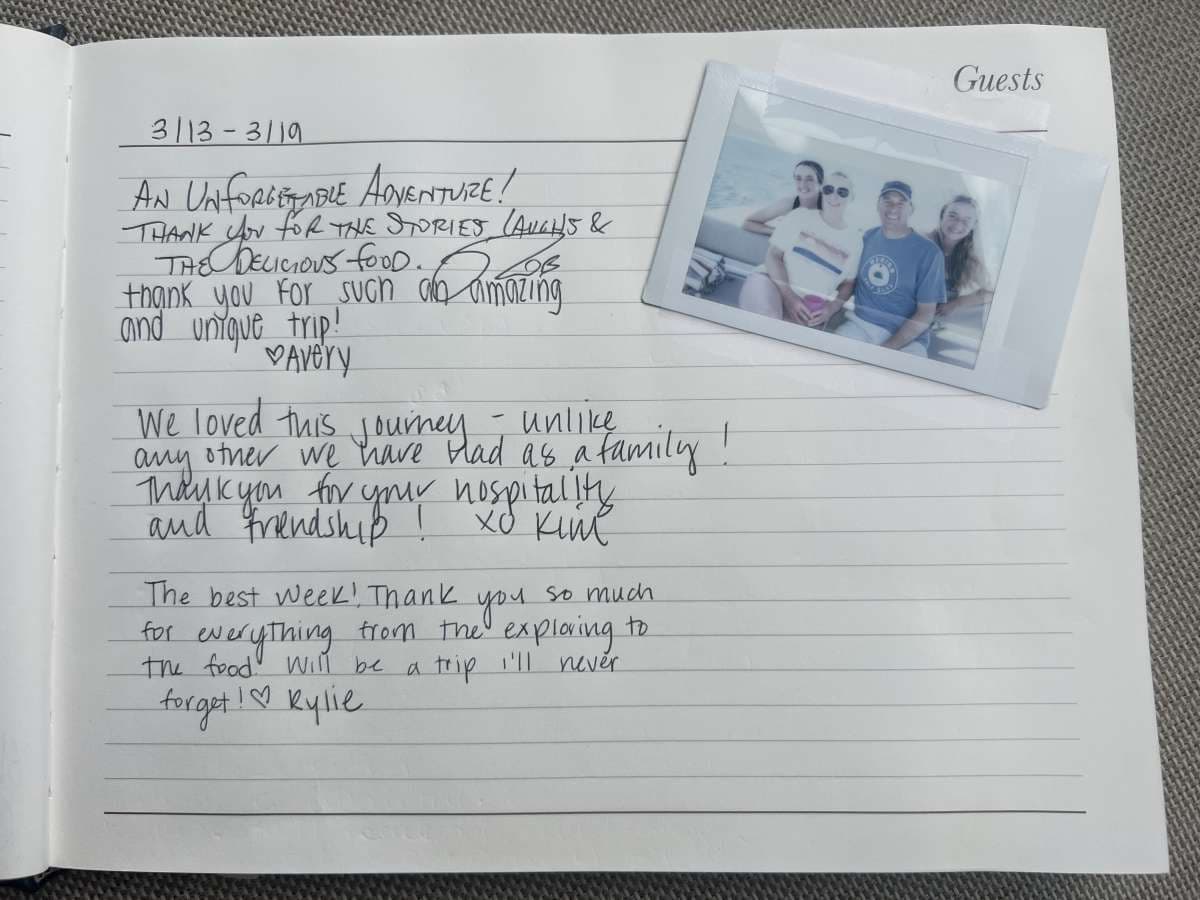 Guests
3/13 - 3/19
AN UNFORGETTABLE ADVENTURE!
THANK YOU FOR THE STORIES, LAUGHS &
THE DELICIOUS FOOD. ROB
thank you for such an amazing
and unique trip!
♡Avery
We loved this journey - unlike
any other we have had as a family!
Thank you for your hospitality
and friendship! XO Kim
The best week! Thank you so much
for everything from the exploring to
the food. Will be a trip i'll never
forget! ♡ Rylie